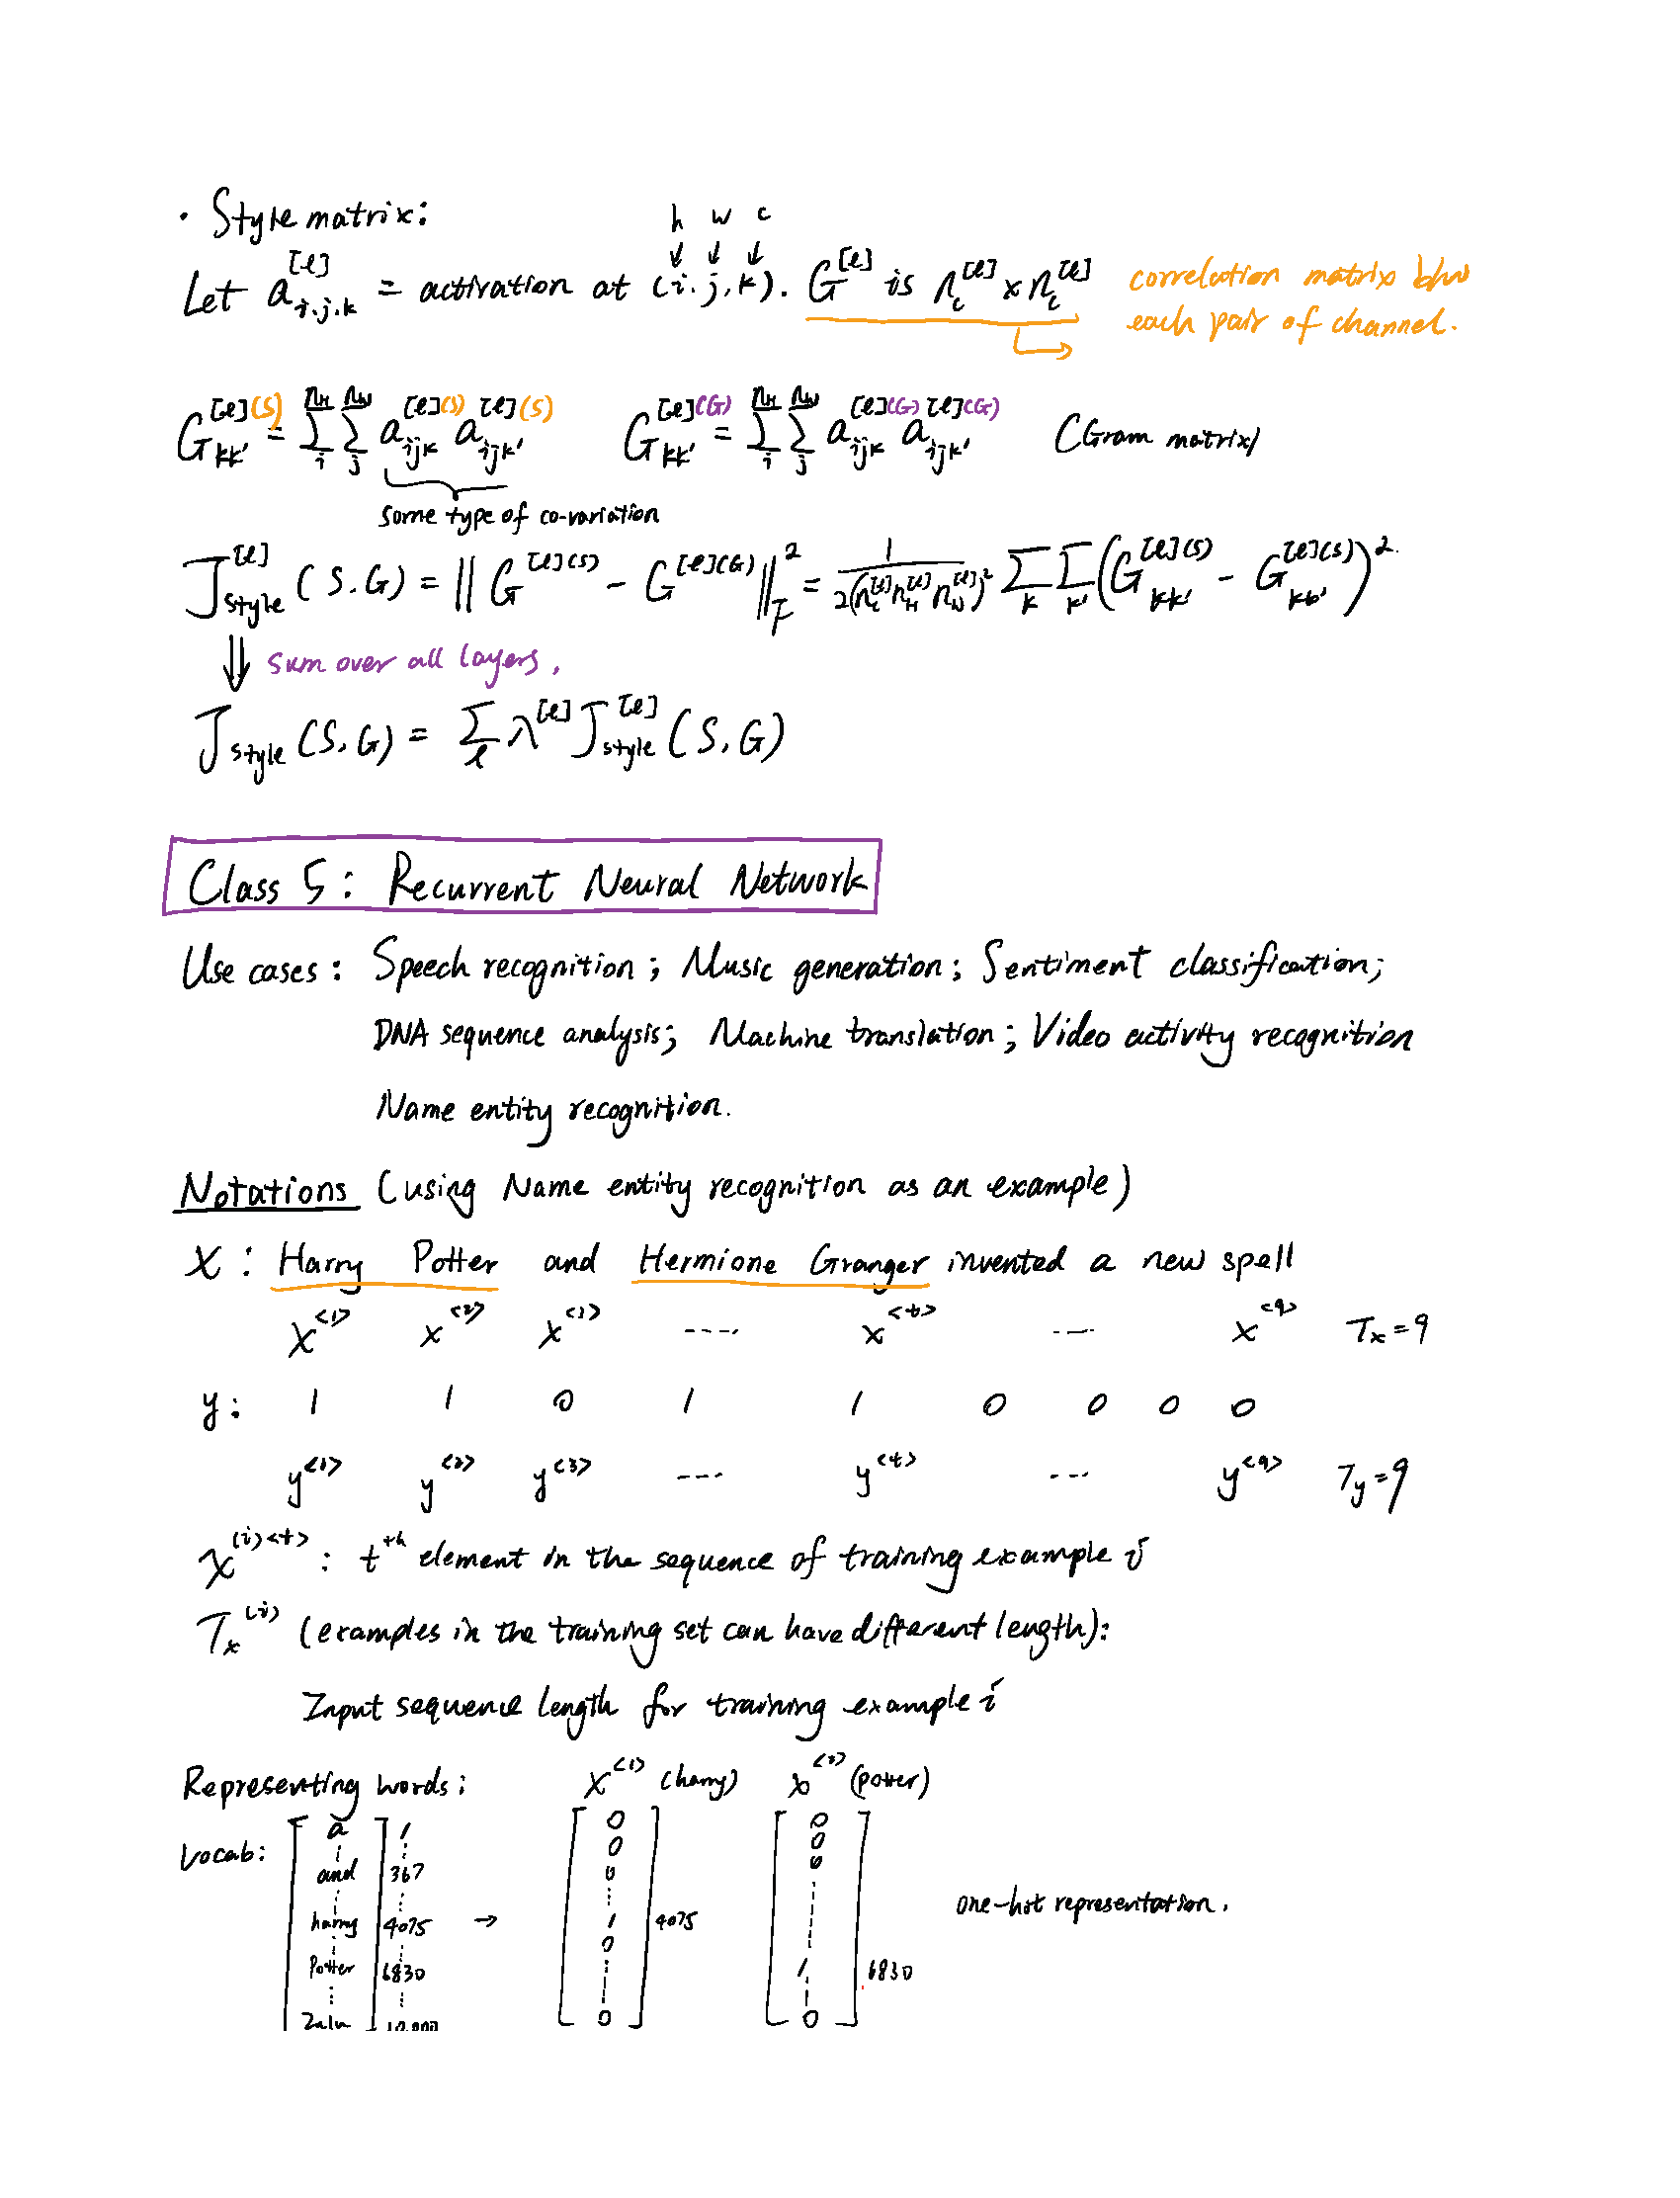 · Style matrix:
h w c
↓ ↓ ↓
Let a_{i.j.k}^{[l]} = activation at (i.j.k). G^{[l]} is n_c^{[l]} x n_c^{[l]} correlation matrix btw
each pair of channel.
G_{kk'}^{[l](S)} = Σ_i^{n_H} Σ_j^{n_W} a_{ijk}^{[l](S)} a_{ijk'}^{[l](S)} G_{kk'}^{[l](G)} = Σ_i^{n_H} Σ_j^{n_W} a_{ijk}^{[l](G)} a_{ijk'}^{[l](G)} (Gram matrix)
some type of co-variation
J_{style}^{[l]} (S.G) = || G^{[l](S)} - G^{[l](G)} ||_F^2 = 1/(2(n_c^{[l]} n_H^{[l]} n_W^{[l]})^2) Σ_k Σ_{k'} (G_{kk'}^{[l](S)} - G_{kk'}^{[l](S)})^2.
⇓ sum over all layers.
J_{style} (S, G) = Σ_l λ^{[l]} J_{style}^{[l]} (S, G)
Class 5: Recurrent Neural Network
Use cases: Speech recognition; Music generation; Sentiment classification;
DNA sequence analysis; Machine translation; Video activity recognition
Name entity recognition.
Notations (using Name entity recognition as an example)
X: Harry Potter and Hermione Granger invented a new spell
X^{<1>} x^{<2>} x^{<3>} ---- x^{<t>} --- x^{<9>} T_x = 9
y: 1 1 0 1 1 0 0 0 0
y^{<1>} y^{<2>} y^{<3>} ---- y^{<t>} --- y^{<9>} T_y = 9
X^{(i)<t>}: t^{th} element in the sequence of training example i
T_x^{(i)} (examples in the training set can have different length):
Input sequence length for training example i
Representing words: X^{<1>} (harry) x^{<2>} (potter)
Vocab: [a 1 0 0
⋮ 0 0
and 367 0 0
harry 4075 → 1 4075
0
Potter 6830 1 6830
one-hot representation.
Zulu 10,000 0 0